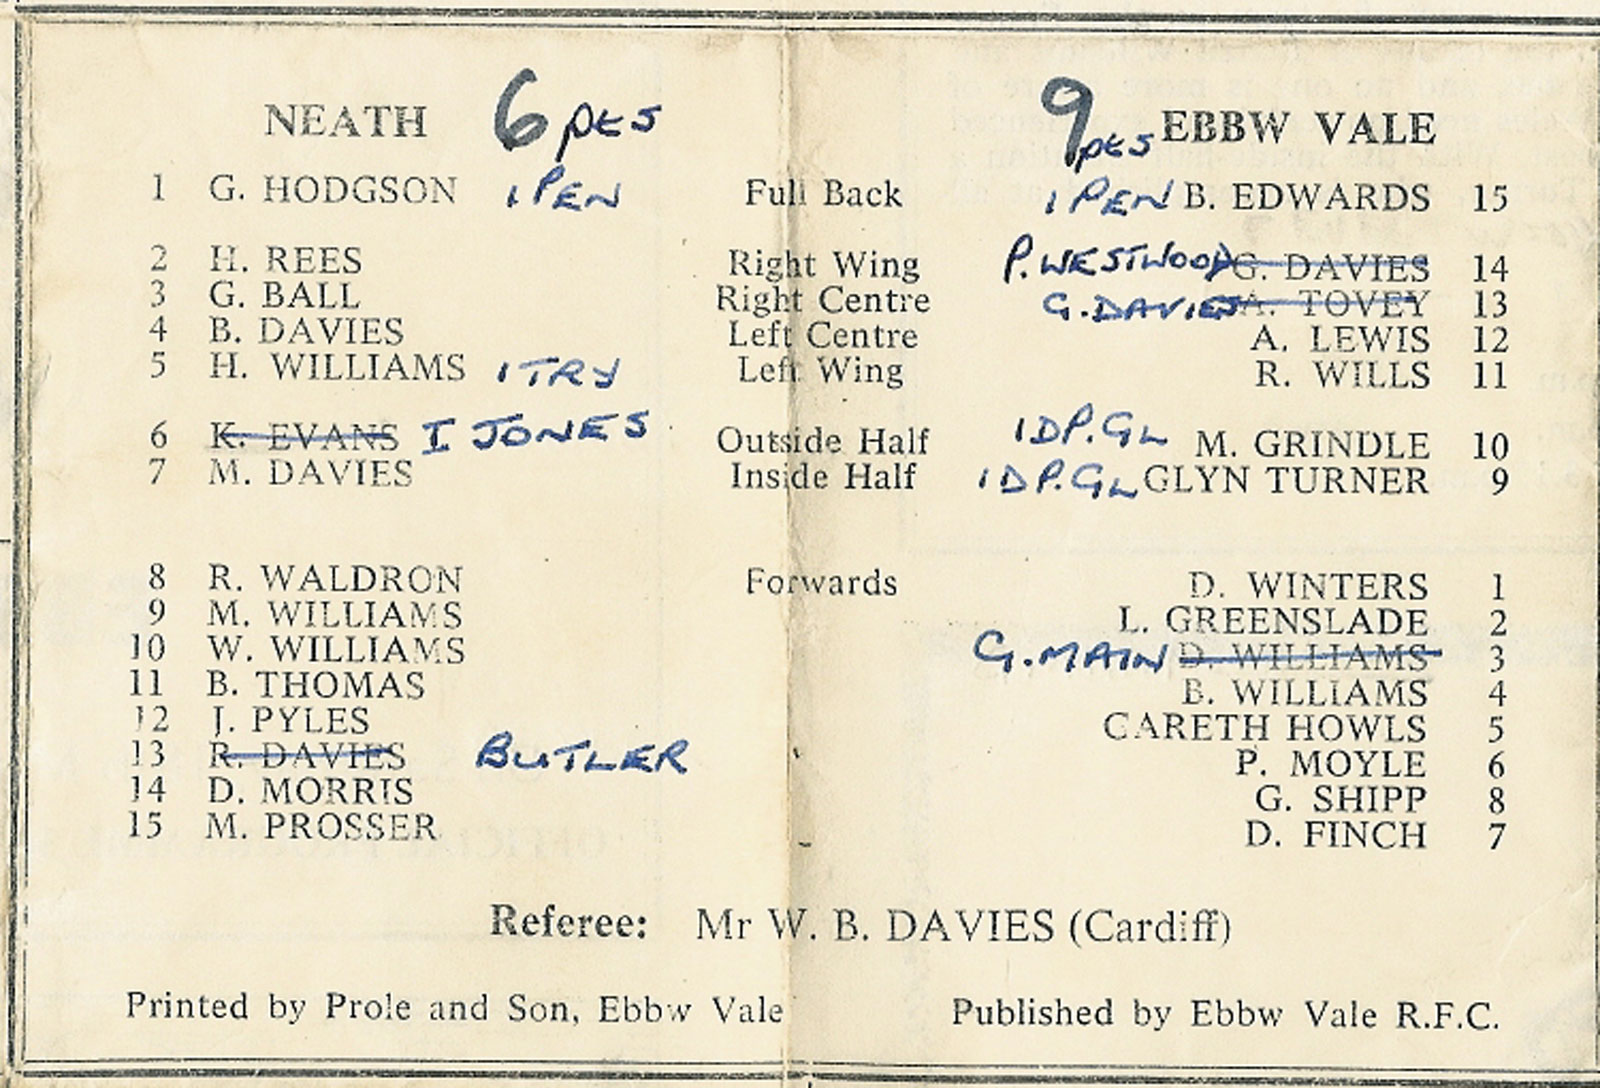 NEATH 6 pts 9 pts EBBW VALE
1 G. HODGSON 1 PEN Full Back 1 PEN B. EDWARDS 15
2 H. REES Right Wing P. WESTWOOD G. DAVIES 14
3 G. BALL Right Centre G. DAVIES A. TOVEY 13
4 B. DAVIES Left Centre A. LEWIS 12
5 H. WILLIAMS 1 TRY Left Wing R. WILLS 11
6 K. EVANS I JONES Outside Half 1 DP. GL M. GRINDLE 10
7 M. DAVIES Inside Half 1 DP. GL GLYN TURNER 9
8 R. WALDRON Forwards D. WINTERS 1
9 M. WILLIAMS L. GREENSLADE 2
10 W. WILLIAMS G. MAIN D. WILLIAMS 3
11 B. THOMAS B. WILLIAMS 4
12 J. PYLES CARETH HOWLS 5
13 R. DAVIES BUTLER P. MOYLE 6
14 D. MORRIS G. SHIPP 8
15 M. PROSSER D. FINCH 7
Referee: Mr W. B. DAVIES (Cardiff)
Printed by Prole and Son, Ebbw Vale Published by Ebbw Vale R.F.C.